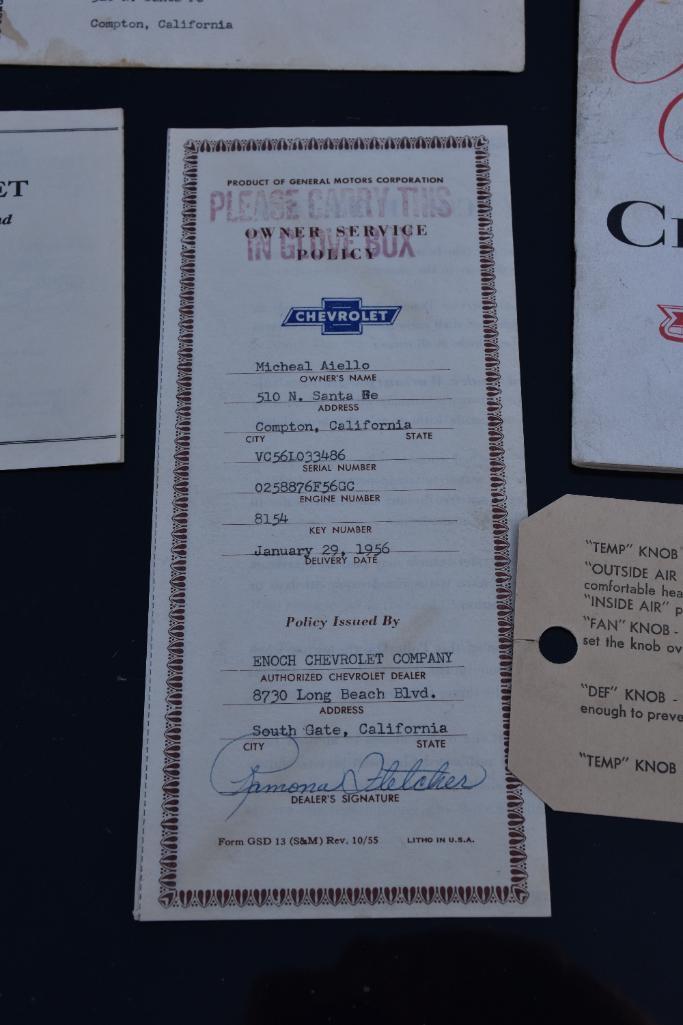 Compton, California
ET
PRODUCT OF GENERAL MOTORS CORPORATION
PLEASE CARRY THIS
OWNER SERVICE
IN GLOVE BOX
POLICY
CHEVROLET
Micheal Aiello
OWNER'S NAME
510 N. Santa Fe
ADDRESS
Compton, California
CITY STATE
VC56L033486
SERIAL NUMBER
0258876F56GC
ENGINE NUMBER
8154
KEY NUMBER
January 29, 1956
DELIVERY DATE
Policy Issued By
ENOCH CHEVROLET COMPANY
AUTHORIZED CHEVROLET DEALER
8730 Long Beach Blvd.
ADDRESS
South Gate, California
CITY STATE
Ramona Fletcher
DEALER'S SIGNATURE
Form GSD 13 (S&M) Rev. 10/55 LITHO IN U.S.A.
"TEMP" KNOB
"OUTSIDE AIR
comfortable hea
"INSIDE AIR" p
"FAN" KNOB -
set the knob ov
"DEF" KNOB -
enough to preve
"TEMP" KNOB